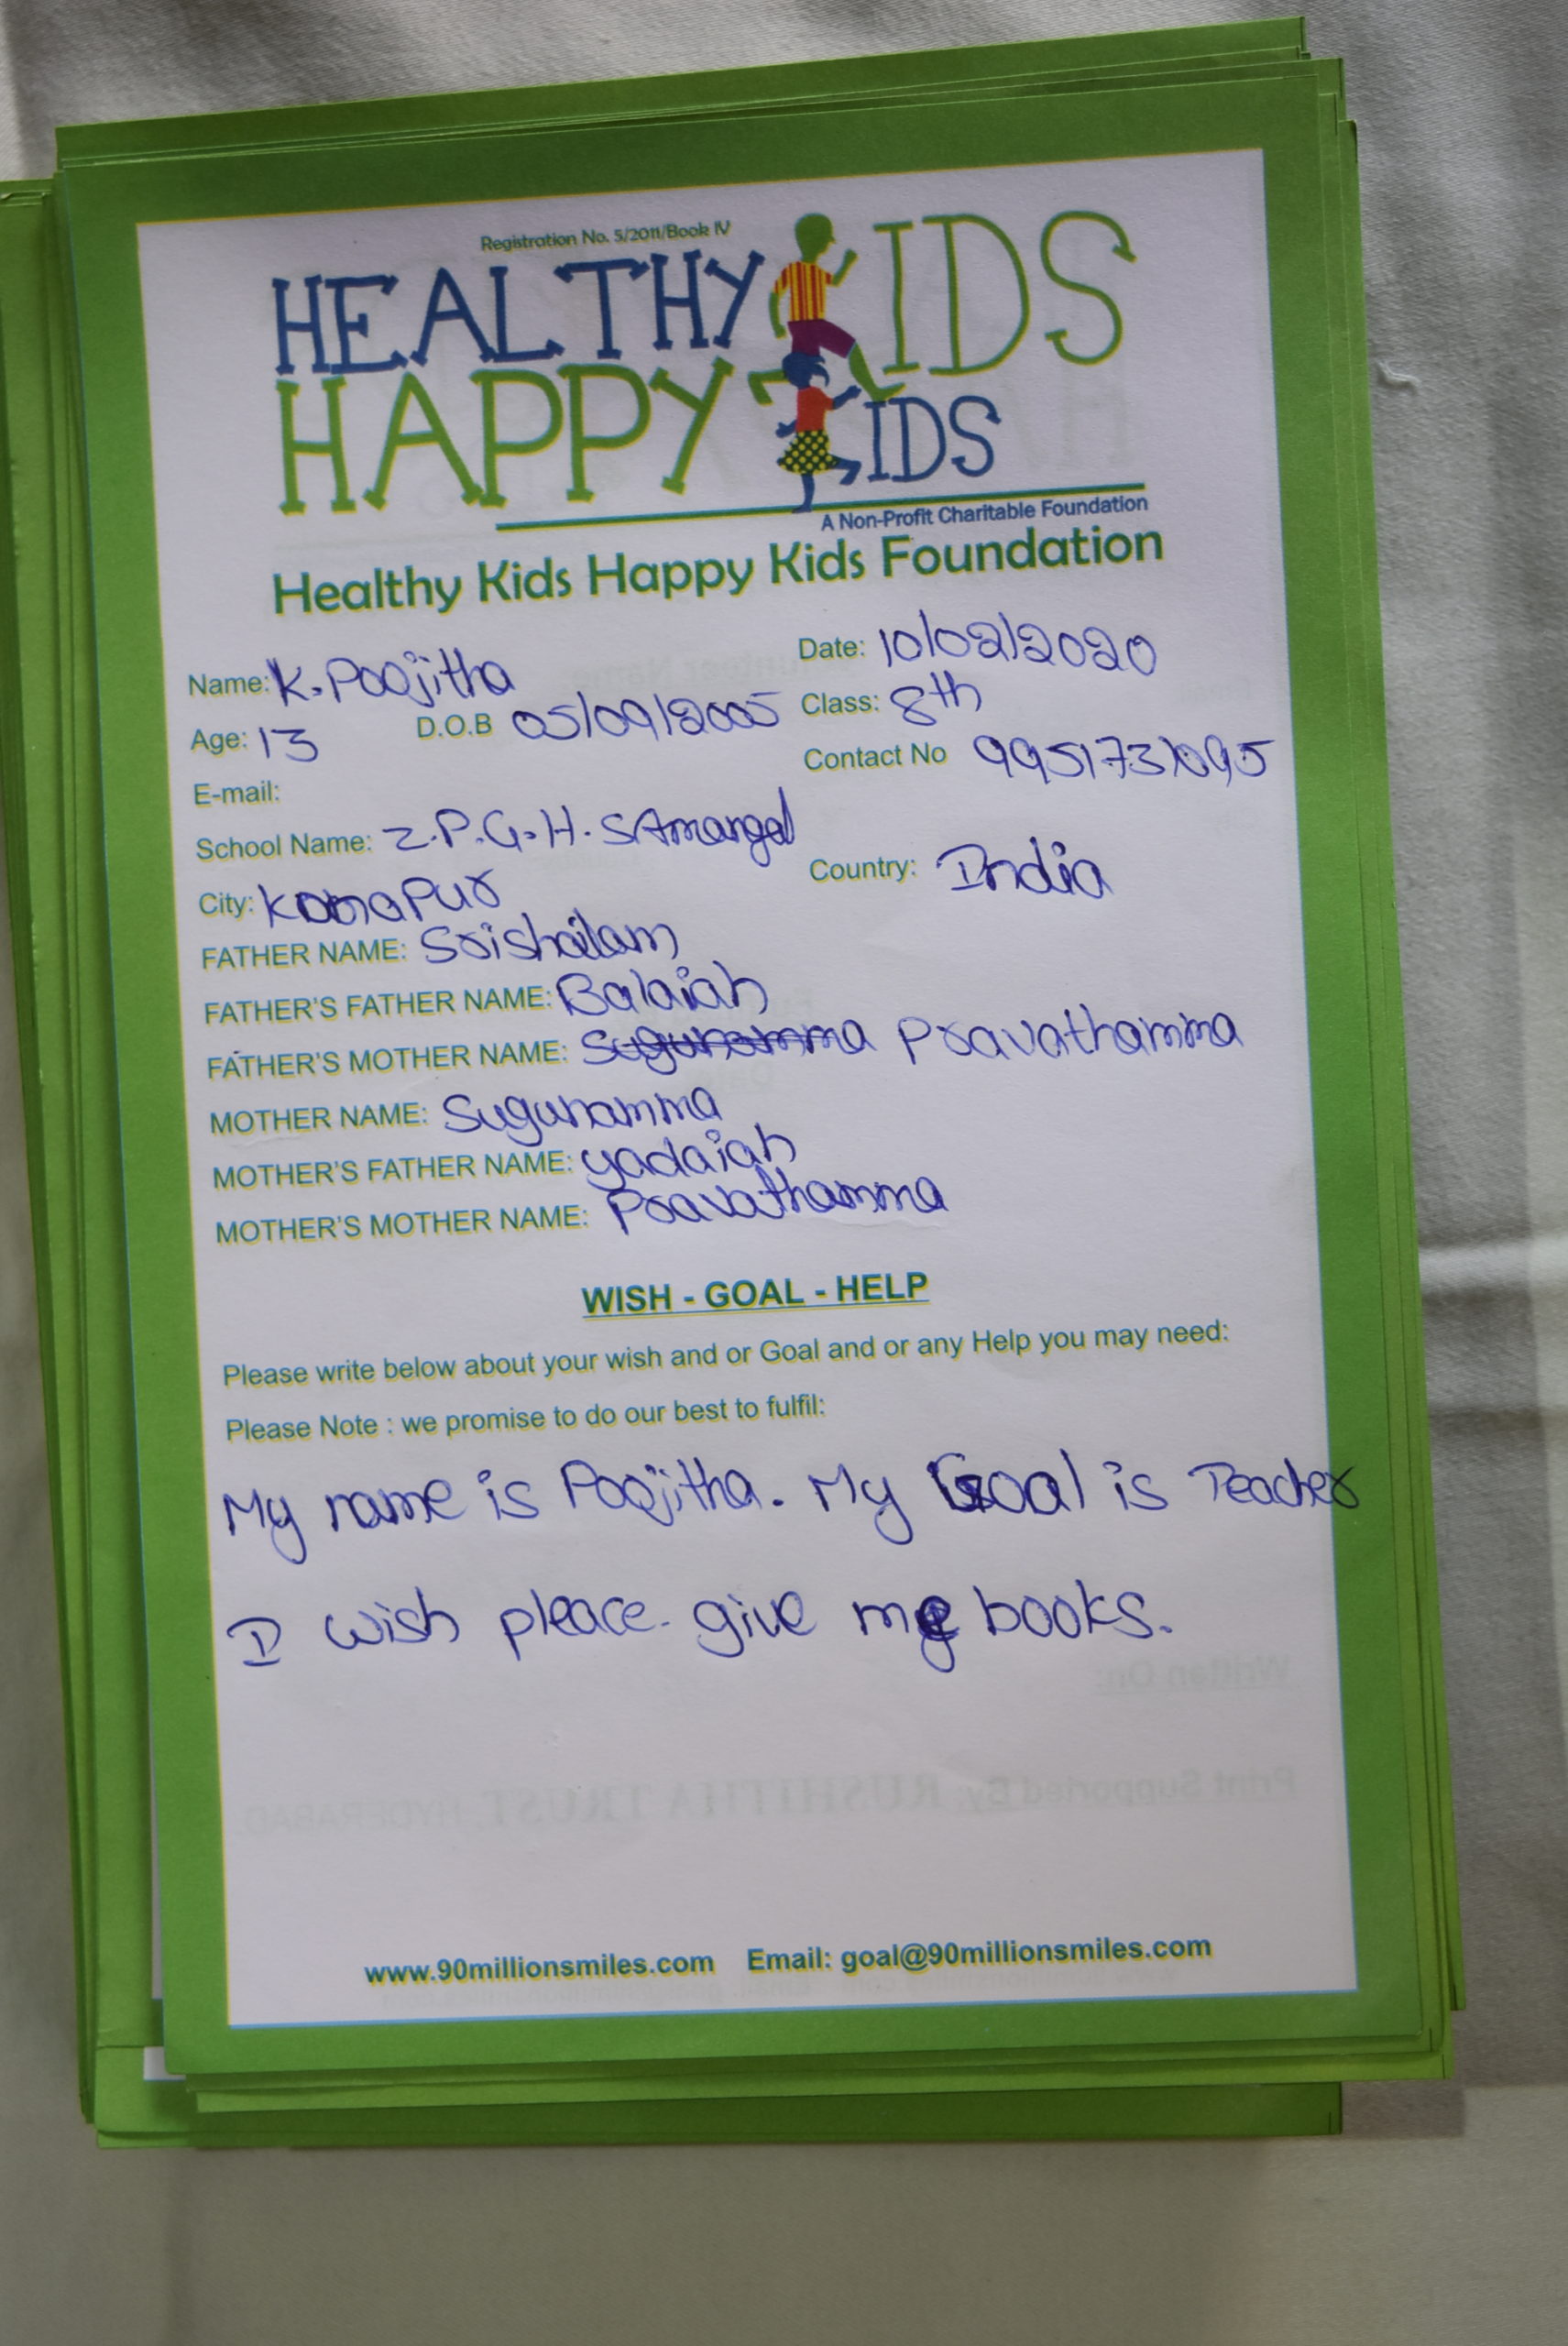 Registration No. 5/2011/Book IV
HEALTHY KIDS
HAPPY KIDS
A Non-Profit Charitable Foundation
Healthy Kids Happy Kids Foundation
Name: K. Poojitha Date: 10/02/2020
Age: 13 D.O.B 05/09/2005 Class: 8th
E-mail: Contact No 9951731095
School Name: Z.P.G.H.S Amangal
City: Country: India
FATHER NAME: Srishailam
FATHER'S FATHER NAME: Balaiah
FATHER'S MOTHER NAME: Sugunamma Pravathamma
MOTHER NAME: Sugunamma
MOTHER'S FATHER NAME: yadaiah
MOTHER'S MOTHER NAME: Pravathamma
WISH - GOAL - HELP
Please write below about your wish and or Goal and or any Help you may need:
Please Note : we promise to do our best to fulfil:
My name is Poojitha. My Goal is Teacher
I wish pleace give me books.
Written On:
Print Supported By: RUSHITHA TRUST, HYDERABAD.
www.90millionsmiles.com Email: goal@90millionsmiles.com